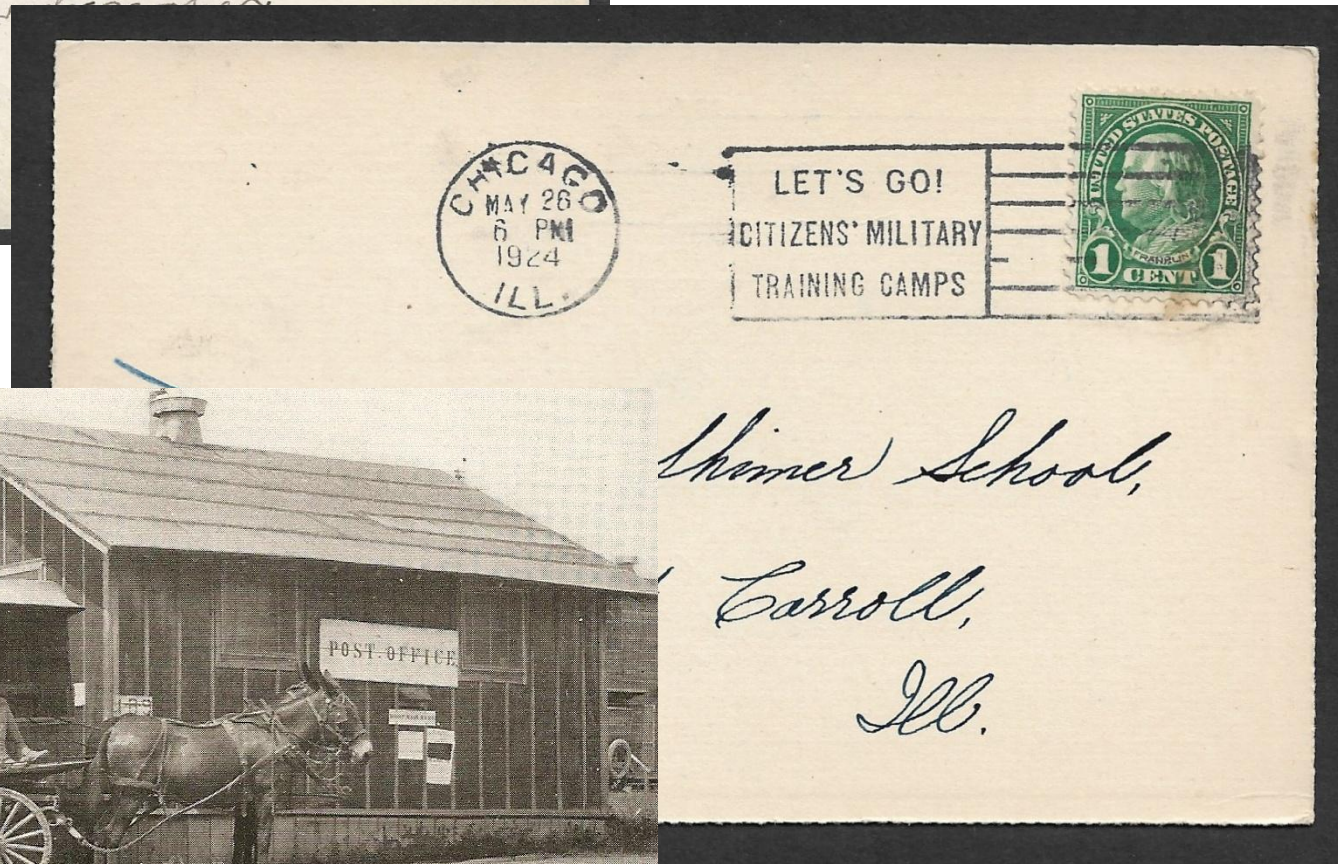 CHICAGO
MAY 26
6 PM
1924
ILL.
LET'S GO!
CITIZENS' MILITARY
TRAINING CAMPS
UNITED STATES POSTAGE
FRANKLIN
1 CENT 1
School,
Carroll,
Ill.
POST.OFFICE